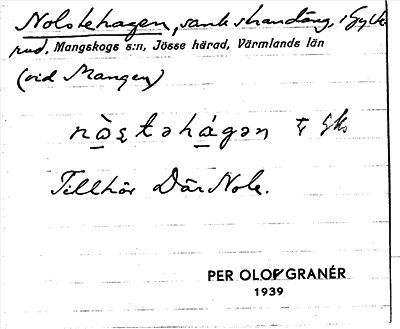 Nolstehagen, sank strandäng, i Gylk-
rud, Mangskogs s:n, Jösse härad, Värmlands län
(vid Mangen)
Tillhör Där Nole.
PER OLOF GRANÉR
1939